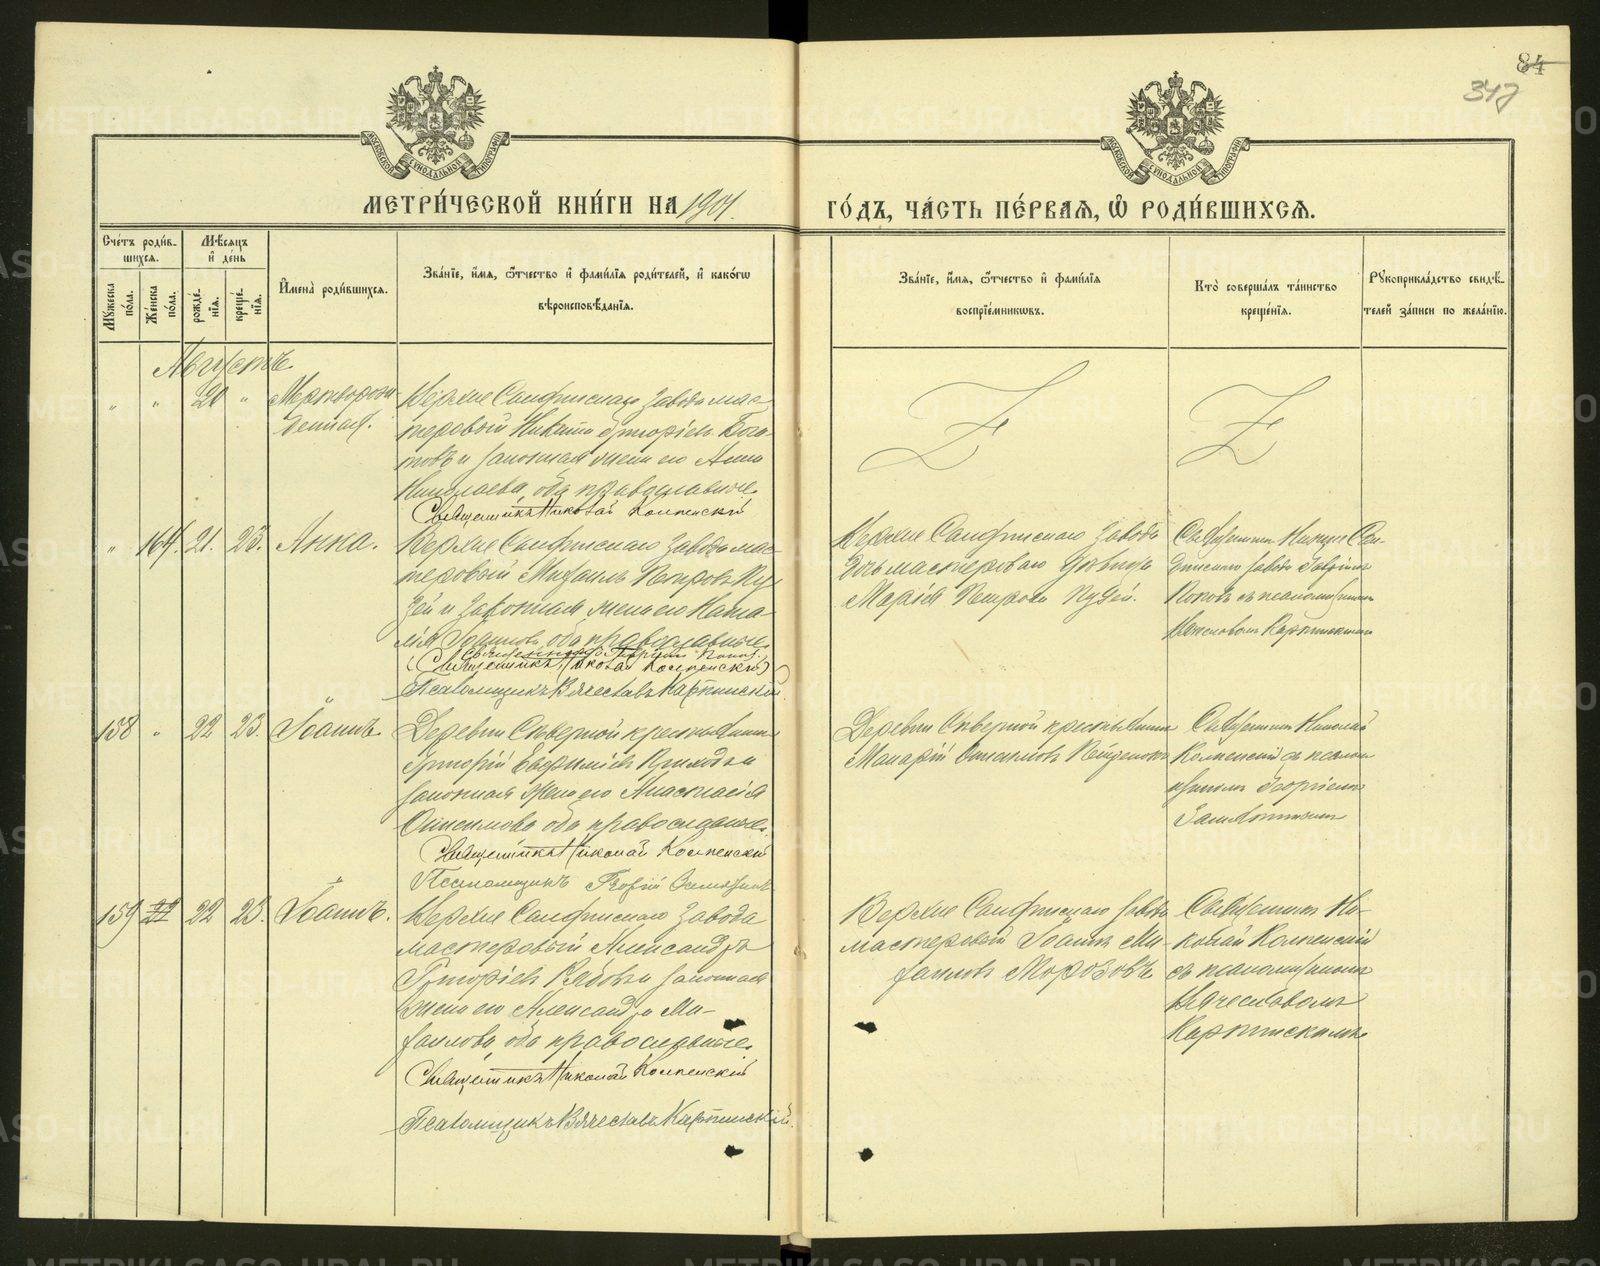 84
347
МЕТРИ́ЧЕСКОЙ КНИ́ГИ НА 1901.
ГО́ДЪ, ЧА́СТЬ ПЕ́РВАЯ, Ѽ РОДИ́ВШИХСЯ.
МОСКОВСКОЙ СѴНОДАЛЬНОЙ ТИПОГРАФІИ
МОСКОВСКОЙ СѴНОДАЛЬНОЙ ТИПОГРАФІИ
Сче́тъ роди́в-
шихся.
Мѣ́сяцъ
и҆ де́нь
Мꙋ́жеска
по́ла.
Же́нска
по́ла.
рожде́-
нїѧ.
креще́-
нїѧ.
И҆мена̀ роди́вшихся.
Зва́нїе, и҆́мя, ѻ҆́тчество и҆ фами́лїя роди́телей, и҆ како́гѡ
вѣроисповѣ́данїя.
Зва́нїе, и҆́мя, ѻ҆́тчество и҆ фами́лїя
воспрїе́мникѡвъ.
Кто̀ соверша́лъ та́инство
креще́нїя.
Рꙋкоприкла́дство свидѣ́-
телей за́писи по жела́нїю.
Августъ.
" " 20 " Мертворож-
денная.
Верхне Салдинскаго завода мас-
теровый Никита Григоріевъ Бога-
товъ и законная жена его Анна
Николаева, оба православные.
Священникъ Николай Колпенскій
" 164. 21. 23. Анна.
Верхне Салдинскаго завода мас-
теровый Михаилъ Петровъ Пу-
зей и законная жена его Ната-
лія Іоаннова, оба православные.
(Священникъ Николай Колпенскій)
Псаломщикъ Вячеславъ Карпинскій.
Верхне Салдинскаго завода
дочь мастероваго дѣвица
Марія Петрова Пузей.
Священникъ Нижне Сал-
динскаго завода
Поповъ съ псаломщикомъ
Вячеславомъ Карпинскимъ
158 " 22 23. Іоаннъ.
Деревни Сѣверной крестьянинъ
Григорій
законная жена его Анастасія
Онисимова, оба православные.
Священникъ Николай Колпенскій
Псаломщикъ Георгій
Деревни Сѣверной крестьянинъ
Макарій
Священникъ Николай
Колпенскій съ псалом-
щикомъ Георгіемъ
159 22 22 23. Іоаннъ.
Верхне Салдинскаго завода
мастеровый Александръ
Григоріевъ Рябовъ и законная
жена его Александра Ми-
хаилова, оба православные.
Священникъ Николай Колпенскій
Псаломщикъ Вячеславъ Карпинскій.
Верхне Салдинскаго завода
мастеровый Іоаннъ Ми-
хаиловъ Морозовъ
Священникъ Ни-
колай Колпенскій
съ псаломщикомъ
Вячеславомъ
Карпинскимъ.
METRIKI.GASO-URAL.RU